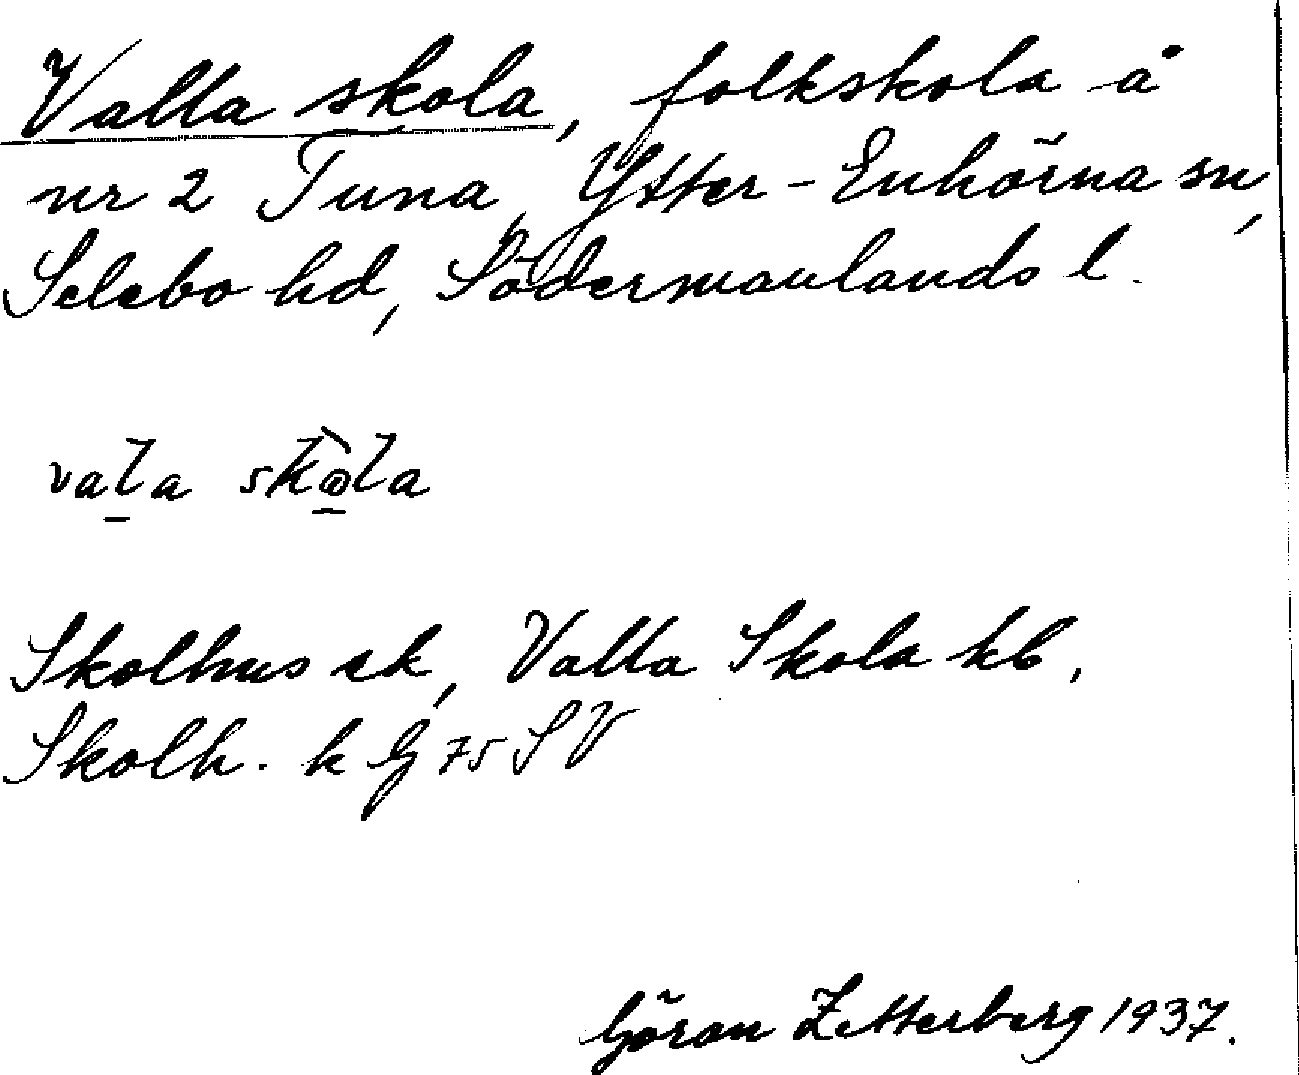 Valla skola, folkskola å
nr 2 Tuna, Ytter-Enhörna sn,
Selebo hd, Södermanlands l.
vala skola
Skolhus ek, Valla Skola kb,
Skolh. k G 75 SV
Göran Zetterberg 1937.